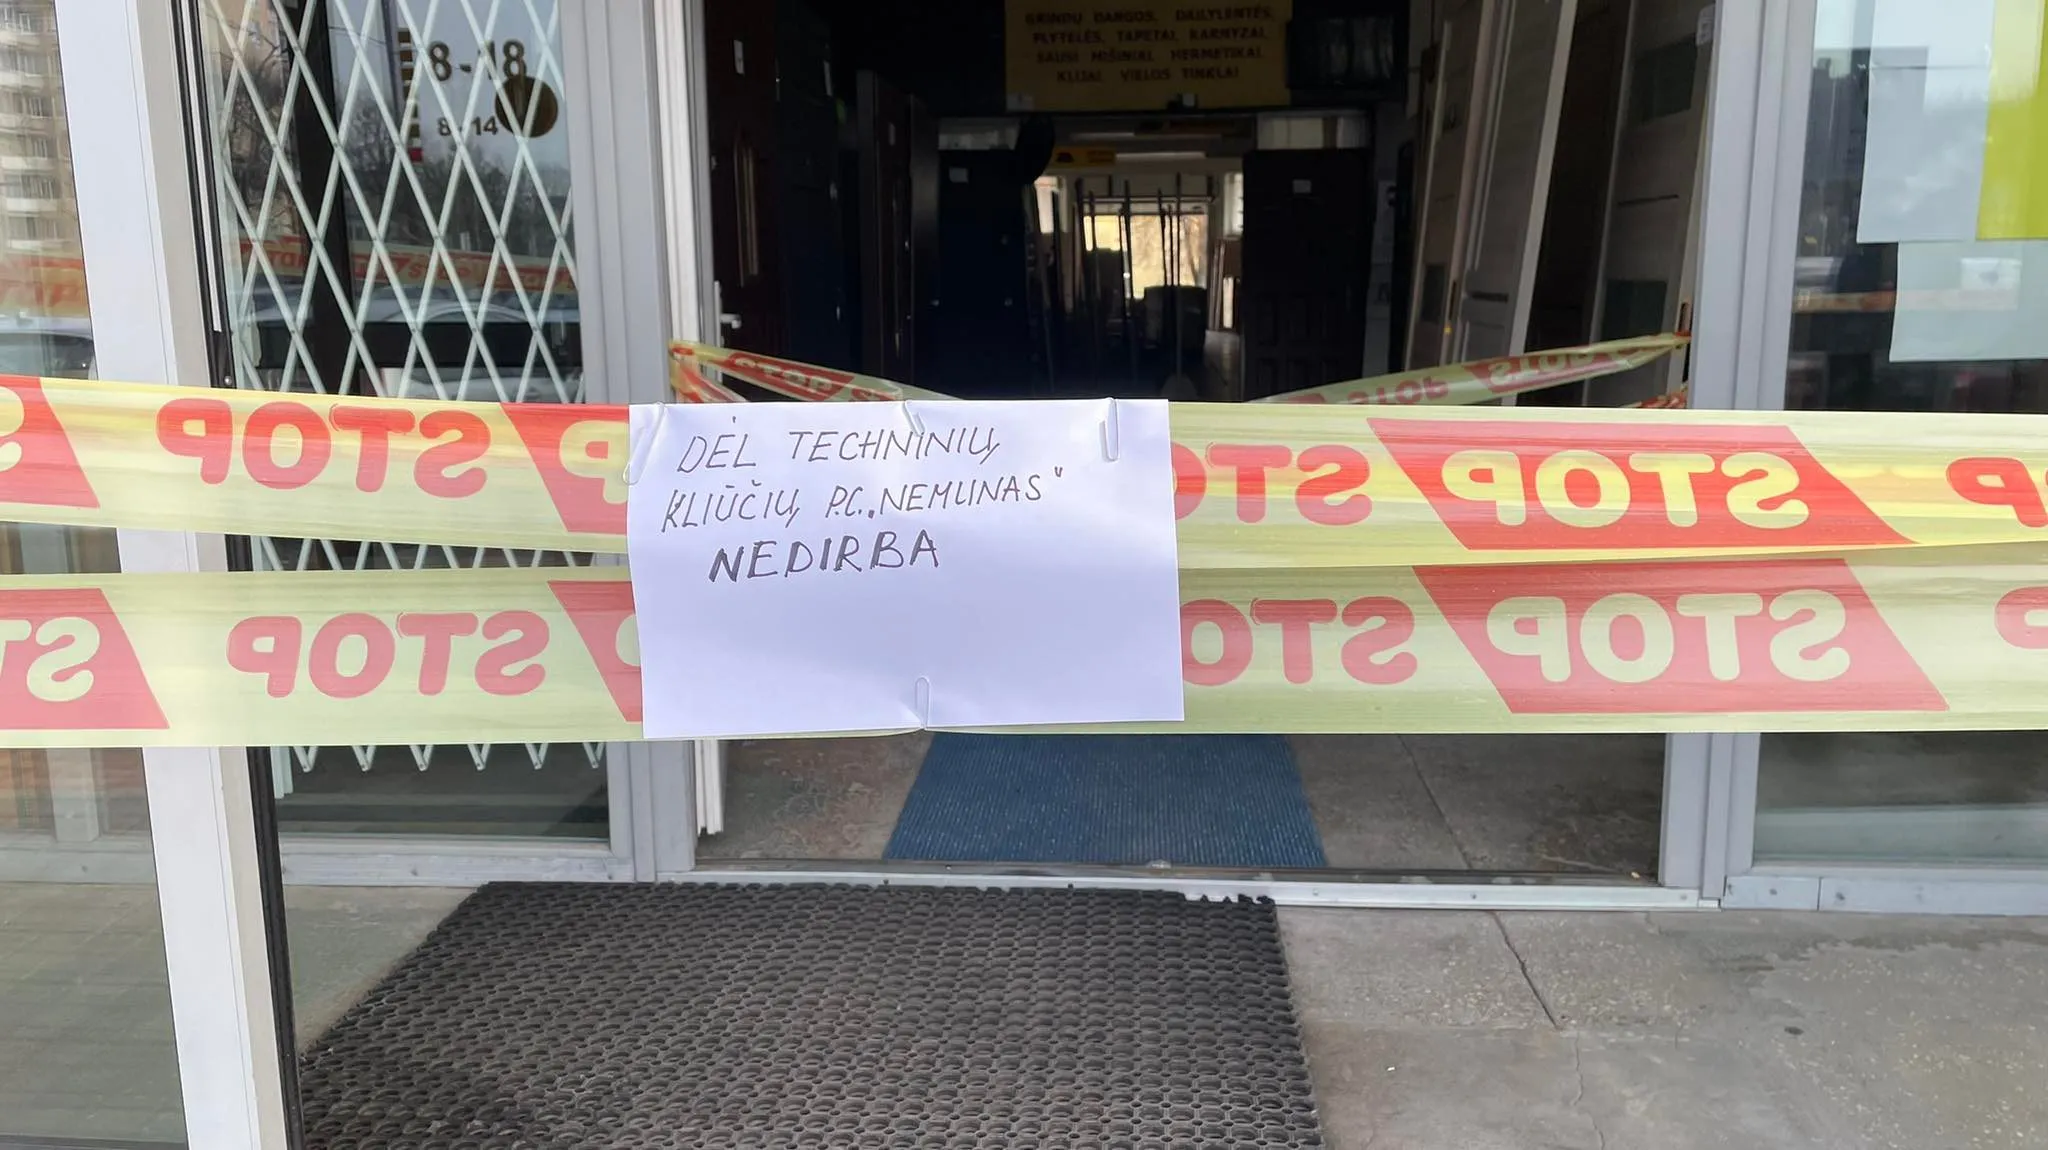 8-18
8-14
GRINDŲ DANGOS, DAILYLENTĖS,
PLYTELĖS, TAPETAI, KARNYZAI,
SAUSI MIŠINIAI, HERMETIKAI,
KLIJAI, VIELOS TINKLAI
STOP STOP STOP STOP
DĖL TECHNINIŲ
KLIŪČIŲ P.C. „NEMUNAS“
NEDIRBA
STOP STOP STOP STOP
STOP STOP STOP STOP